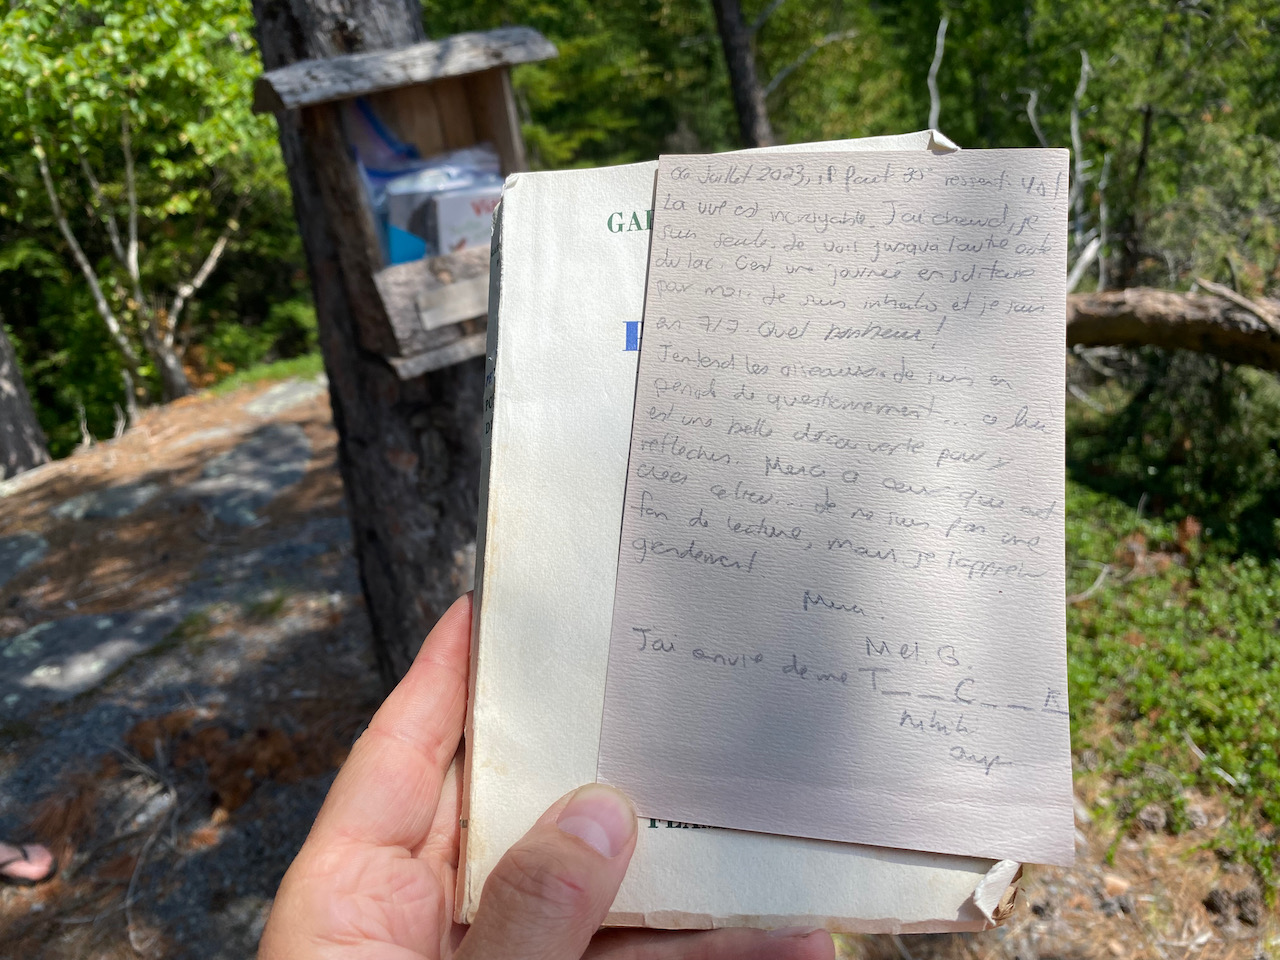 GA
06 Juillet 2023, il fait 30° ressent. 40!
La vue est incroyable. J'ai chaud, je
suis seule. Je vois jusqu'a l'autre coté
du lac. C'est une journée en solitaire
pour moi. Je suis et je suis
en 7/7. Quel bonheur!
J'entend les oiseaux. Je suis en
periode de questionnement... ce lieu
est une belle découverte pour y
reflechir. Merci a ceux que ont
crées ce lieu... Je ne suis pas une
fan de lecture, mais je l'apprécie
grandement.
Merci.
Mel. B.
J'ai envie de me T__C___R
hihihi
FLA